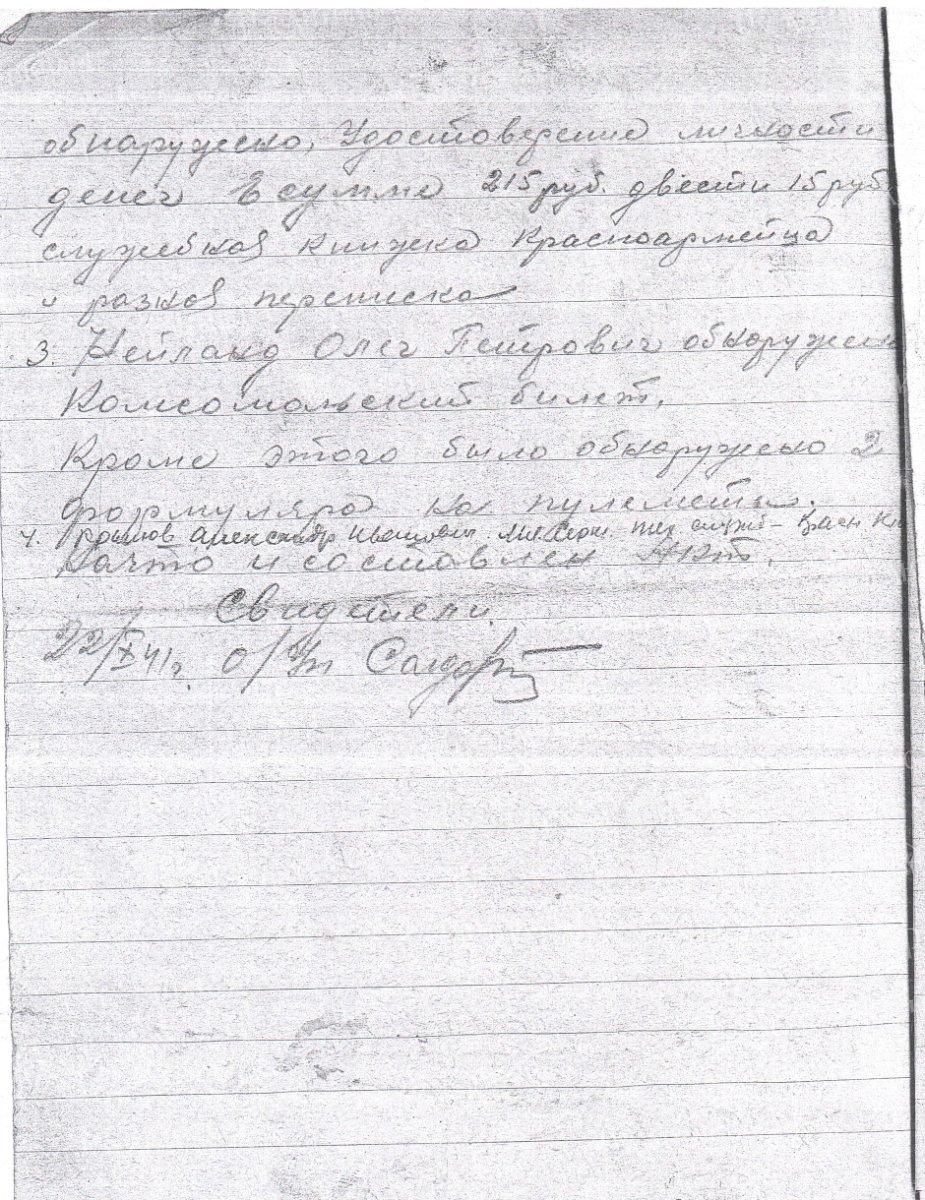 обнаружено, Удостоверение личности
денег В сумме 215 руб. двести 15 руб
служебная книжка Красноармейца
и разная переписка
3. Нейланд Олег Петрович обнаружен
Комсомольский билет.
Кроме этого было обнаружено 2
формуляра на пулеметы.
4. Александр Иванович
На что и составлен Акт.
Свидетели.
22/X 41 г.